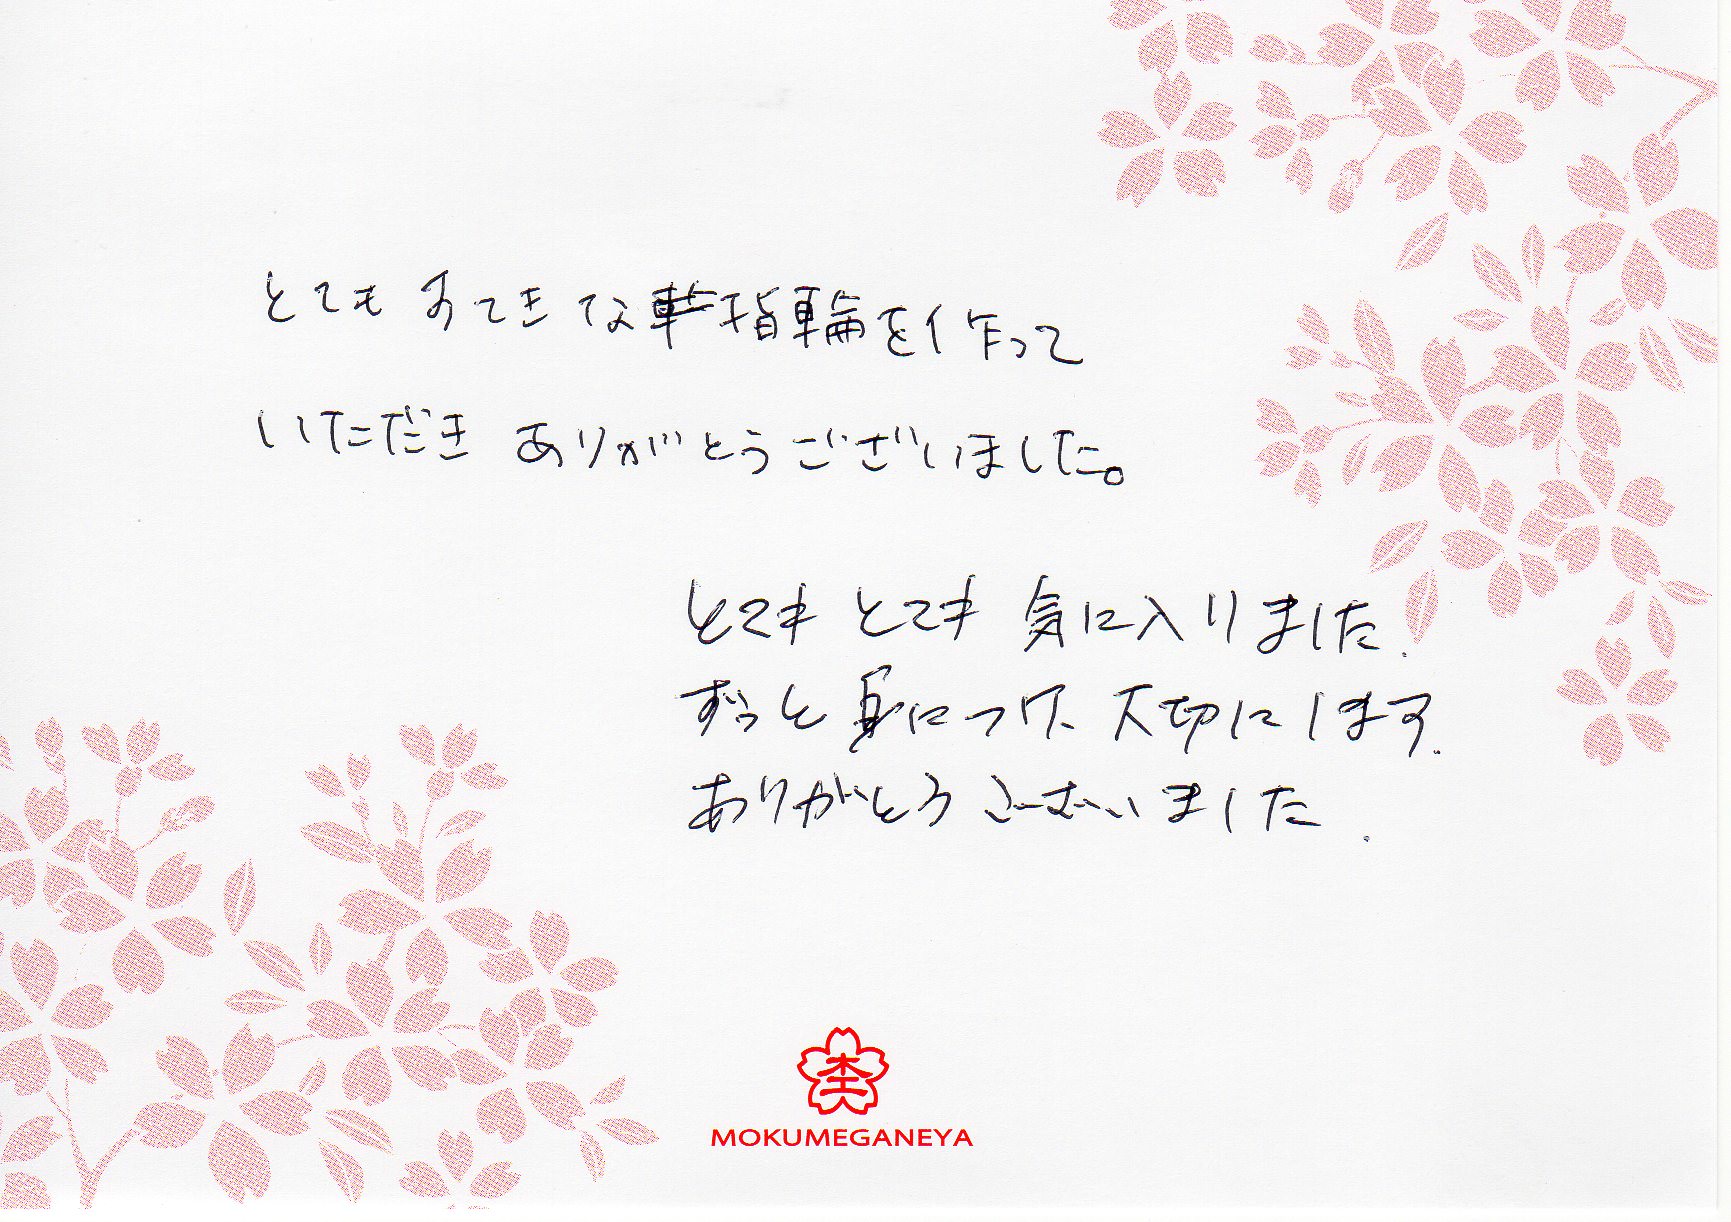 とても すてきな指輪を作って
いただき ありがとうございました。
とても とても 気に入りました.
ずっと 身につけ、大切にします.
ありがとう ございました.
杢
MOKUMEGANEYA